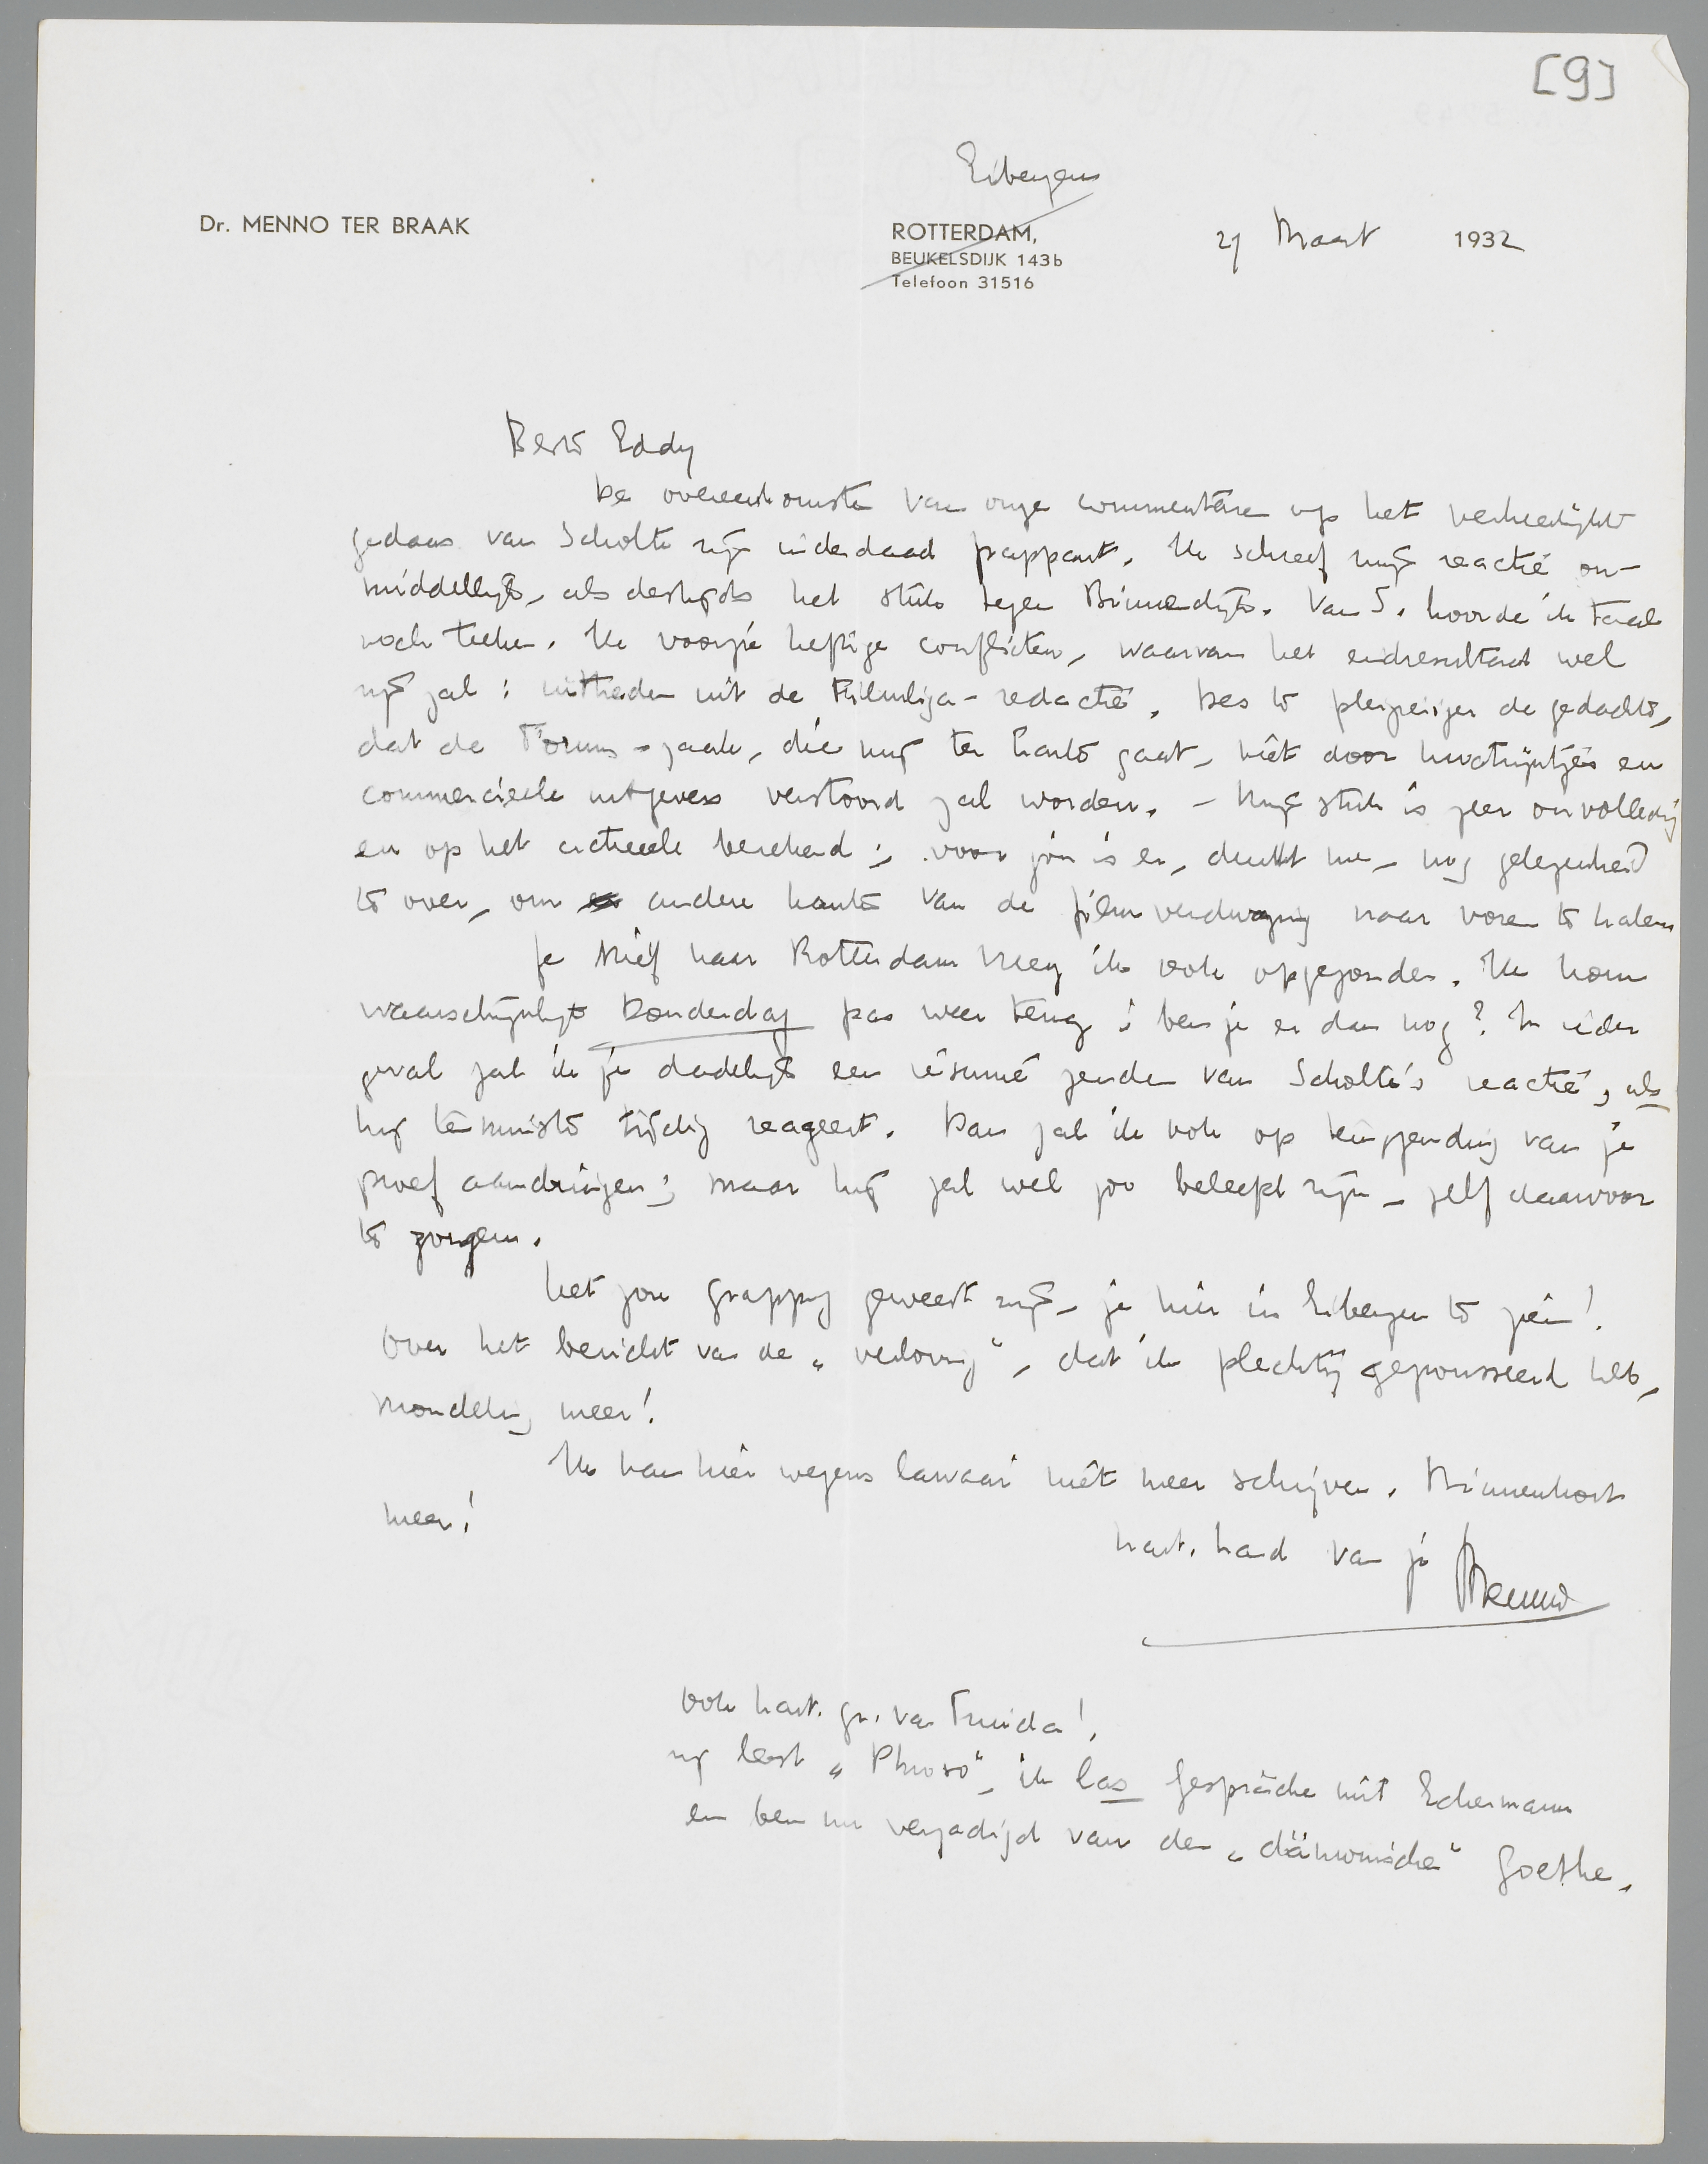 [9]
Eibergen
Dr. MENNO TER BRAAK
ROTTERDAM,
BEUKELSDIJK 143b
Telefoon 31516
27 Maart 1932
Beste Eddy
De overeenkomsten van onze commentaren op het verheerlijkt
gedaas van Scholte zijn inderdaad frappant. Ik schreef mijn reactie on-
middellijk, als destijds het stuk tegen Binnendijk. Van S. hoorde ik taal
noch teeken. Ik voorzie heftige conflicten, waarvan het eindresultaat wel
zijn zal: uittreden uit de Filmliga-redactie. Des te pleizieriger de gedachte,
dat de Forum-zaak, die mij ter harte gaat, niet door kwatrijntjes en
commercieele uitgevers verstoord zal worden. - Mijn stuk is zeer onvolledig
en op het actueele berekend; voor jou is er, dunkt me, nog gelegenheid
te over, om andere kanten van de filmverdwazing naar voren te halen
Je brief naar Rotterdam kreeg ik ook opgezonden. Ik kom
waarschijnlijk Donderdag pas weer terug; ben je er dan nog? In ieder
geval zal ik je dadelijk een résumé zenden van Scholte's reactie, als
hij tenminste tijdig reageert. Dan zal ik ook op terugzending van je
proef aandringen; maar hij zal wel zoo beleefd zijn, zelf daarvoor
te zorgen.
Het zou grappig geweest zijn, je hier in Eibergen te zien!
Over het bericht van de „verloving", dat ik plechtig geposseerd heb,
mondeling meer!
Ik kan hier wegens lawaai niet meer schrijven. Binnenkort
meer!
hart. hand van je Menno
Ook hart. gr. van Truida!
zij leest „Phroso", ik las Gespräche mit Eckermann
en ben nu verzadigd van den „dämonischen" Goethe.